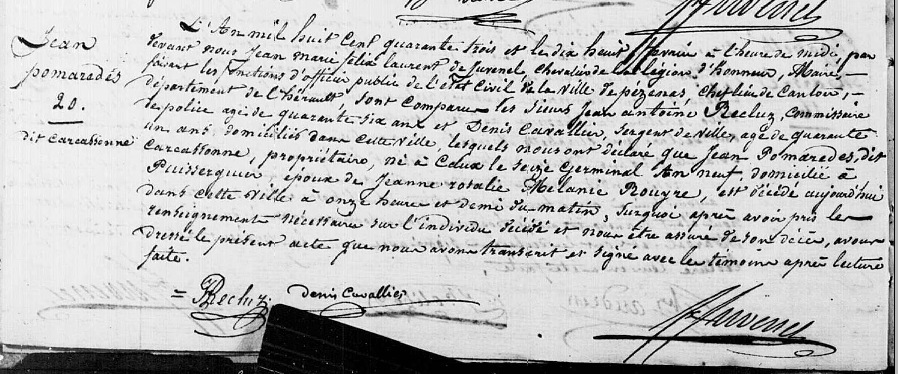 Jean
pomarédès
20.
dit Carcassonne
L'An mil huit cent quarante trois et le dix huit fevrier à l'heure de midi, par
devant nous Jean marie félix laurent de Juvenel, Chevalier de la légion d'honneur, Maire, —
faisant les fonctions d'officier public de l'Etat Civil de la Ville de pezenas Chef lieu de Canton, —
département de l'hérault, sont Comparus les sieurs Jean antoine Recluz, Commissaire
de police agé de quarante six ans et Denis Cavallier, Sergent de Ville, agé de quarante
un ans, domiciliés dans cette Ville, lesquels nous ont déclaré que Jean Pomaredes, dit
Carcassonne, propriétaire, né à Caux le seize Germinal An neuf, domicilié à
Puisserguier, époux de Jeanne rosalie Mélanie Rouyre, est décédé aujourd'hui
dans cette Ville à onze heures et demi du matin, surquoi après avoir pris les
renseignements nécessaires sur l'individu décédé et nous être assuré de son décès, avons
dressé le présent acte que nous avons transcrit et signé avec les témoins après lecture
faite.
= Recluz. denis Cavallier